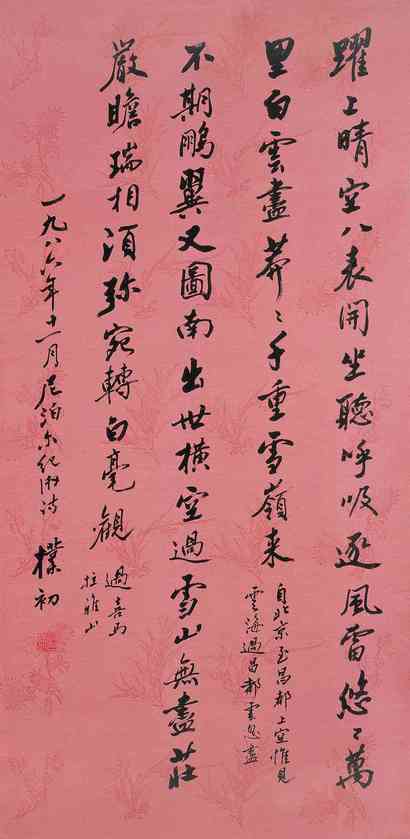 躍上晴空八表開坐聽呼吸逐風雷悠〻萬
里白雲盡莽〻千重雪嶺来
自北京至昌都上空惟見
雲海過昌都雲忽盡
不期鵬翼又圖南出世橫空過雪山無盡莊
嚴瞻瑞相須弥宛轉白毫觀
過喜馬
拉雅山
一九八六年十一月尼泊尔纪游诗 樸初